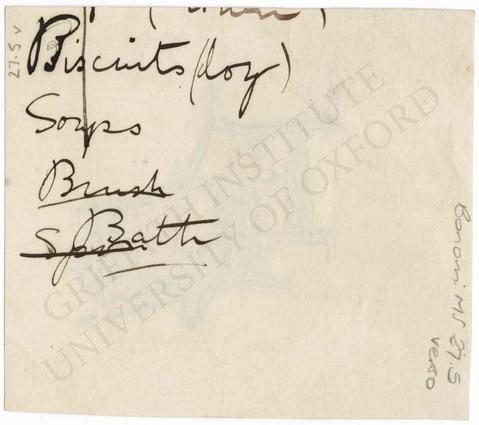 Biscuits (dog)
Soaps
Brush
Bath
27.5 v
Bonomi MS 27.5
verso
GRIFFITH INSTITUTE
UNIVERSITY OF OXFORD